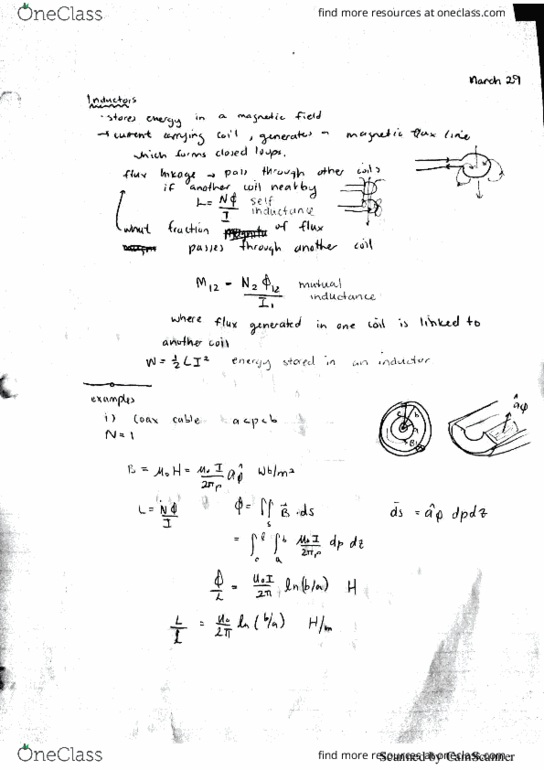 OneClass
find more resources at oneclass.com
March 29
Inductors
- stores energy in a magnetic field
→ current carrying coil, generates magnetic flux line
which forms closed loops.
flux linkage → pass through other coils
if another coil nearby
L = NΦ/I self inductance
what fraction of flux
passes through another coil
M12 = N2 Φ12 / I1 mutual inductance
where flux generated in one coil is linked to
another coil
W = ½ L I² energy stored in an inductor
examples
i) Coax cable a<ρ<b
N=1
B = μ0 H = μ0 I / 2πρ âφ Wb/m²
L = NΦ/I Φ = ∫∫s B · ds ds = âφ dρdz
= ∫ ∫ μ0 I / 2πρ dρ dz
= μ0 I / 2π ln(b/a) H
L/l = μ0 / 2π ln(b/a) H/m
OneClass
find more resources at oneclass.com
Scanned by CamScanner